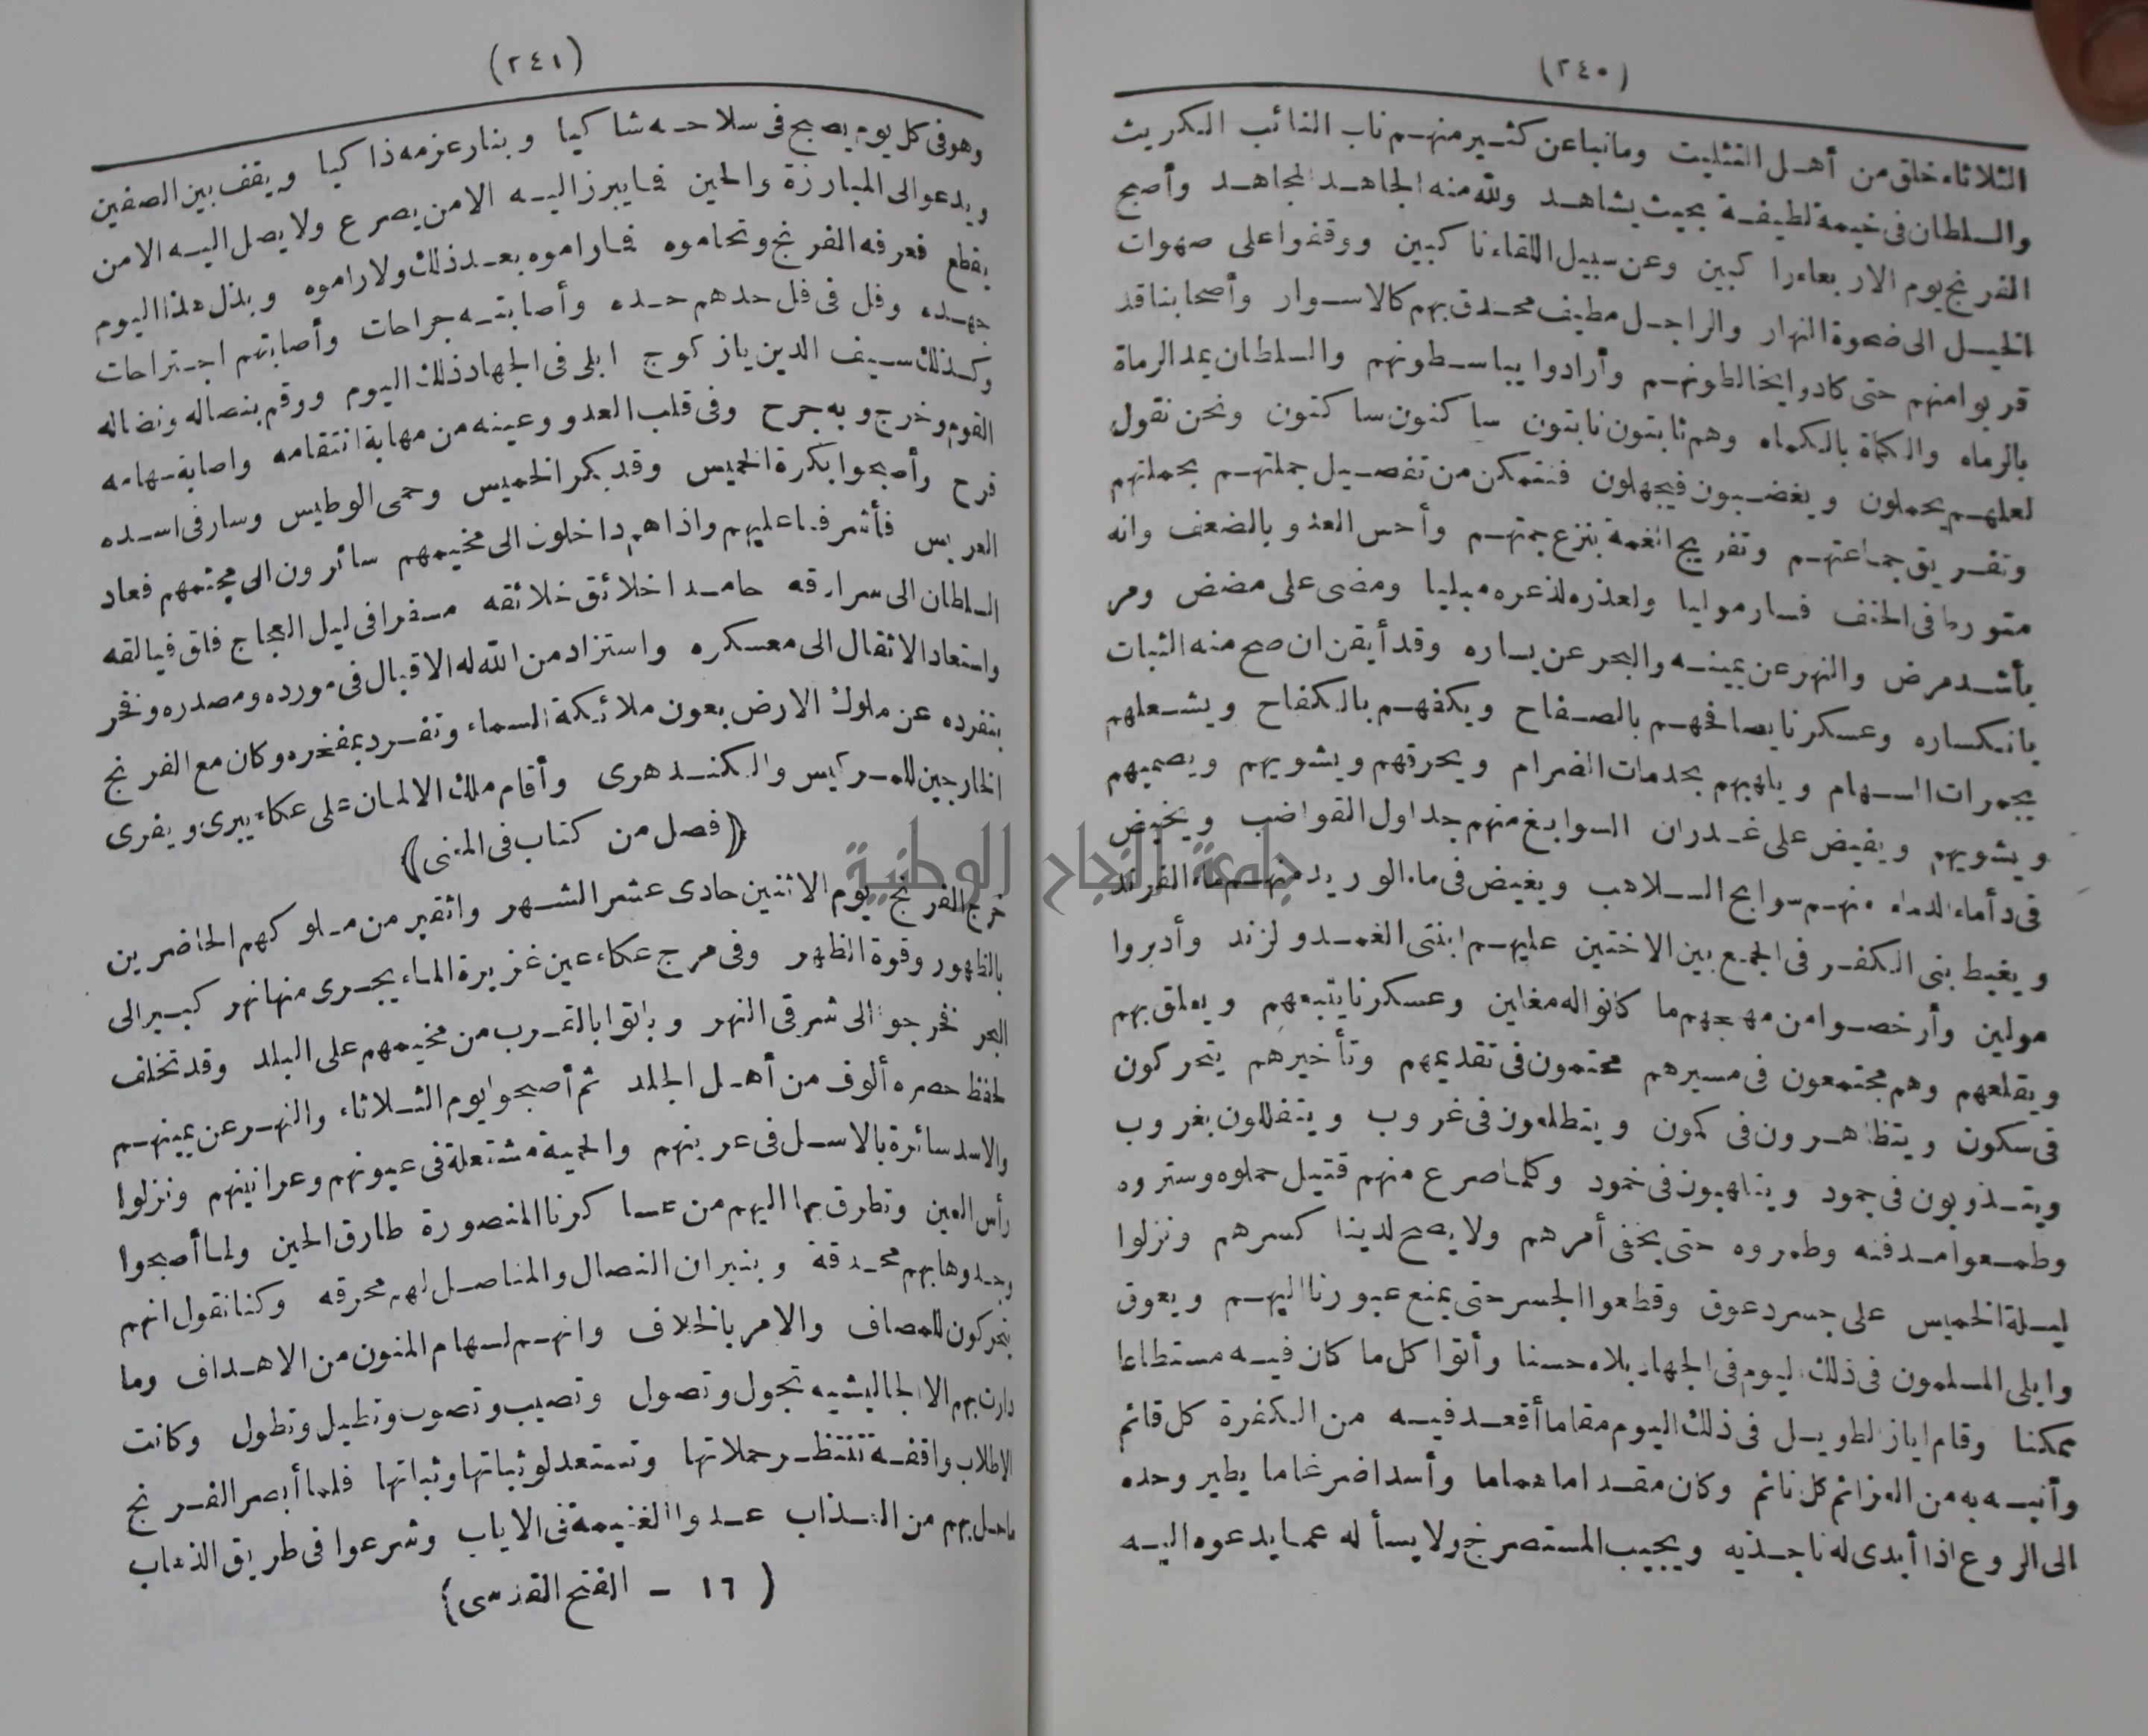 (٢٤٠)
الثلاثاء خلق من أهل التثليث وما نبا عن كثير منهم ناب النائب الكريث
والسلطان فى خيمة لطيفة بحيث يشاهد ولله منه الجاهد المجاهد وأصبح
الفرنج يوم الاربعاء راكبين وعن سبيل اللقاء ناكبين ووقفوا على صهوات
الخيل الى ضحوة النهار والراجل مطيف محدق بهم كالاسوار وأصحابنا قد
قربوا منهم حتى كادوا يخالطونهم وأرادوا يباسطونهم والسلطان يمد الرماة
بالرماه والكماة بالكماه وهم ثابتون نابتون ساكنون ساكتون ونحن نقول
لعلهم يحملون ويغضبون فيجهلون فنتمكن من تفصيل جملتهم بحملتهم
وتفريق جماعتهم وتفريج الغمة بنزع جمتهم وأحس العدو بالضعف وانه
متورط فى الحتف فسار موليا ولعذره لذعره مبليا ومضى على مضض ومر
بأشد مرض والنهر عن يمينه والبحر عن يساره وقد أيقن ان صح منه الثبات
بانكساره وعسكرنا يصافحهم بالصفاح ويكفهم بالكفاح ويشعلهم
بجمرات السهام ويلهبهم بحدمات الضرام ويحرقهم ويشويهم ويصميهم
ويشويهم ويفيض على غدران السوابغ منهم جداول القواضب ويخيض
فى دأماء الدماء منهم سوابح السلاهب ويغيض فى ماء الوريد منهم ماء الفرند
ويغيط بنى الكفر فى الجمع بين الاختين عليهم ابنتى الغمد ولزند وأدبروا
مولين وأرخصوا من مهجهم ما كانوا له مغلين وعسكرنا يتبعهم ويعلق بهم
ويقلعهم وهم مجتمعون فى مسيرهم محتمون فى تقديمهم وتأخيرهم يتحركون
فى سكون ويتظاهرون فى كمون ويتطلعون فى غروب ويتفللون بغروب
ويتذوبون فى جمود ويتلهبون فى خمود وكلما صرع منهم قتيل حملوه وستروه
وطمعوا مدفنه وطمروه حتى يخفى أمرهم ولا يصح لدينا كسرهم ونزلوا
ليلة الخميس على جسر دعوق وقطعوا الجسر حتى يمنع عبورنا اليهم ويعوق
وابلى المسلمون فى ذلك اليوم فى الجهاد بلاء حسنا وأتوا كل ما كان فيه مستطاعا
ممكنا وقام اياز لطويل فى ذلك اليوم مقاما أقعد فيه من الكفرة كل قائم
وأنبه به من العزائم كل نائم وكان مقداما هماما وأسدا ضرغاما يطير وحده
الى الروع اذا أبدى له ناجذيه ويجيب المستصرخ ولا يسأله عما يدعوه اليه
(٢٤١)
وهو فى كل يوم يصبح فى سلاحه شاكيا وبنار عزمه ذاكيا ويقف بين الصفين
ويدعو الى المبارزة والحين فما يبرز اليه الا من يصرع ولا يصل اليه الا من
يقطع فعرفه الفرنج وتحاموه فما راموه بعد ذلك ولا راموه وبذل هذا اليوم
جهده وفل فى فل حدهم حده وأصابته جراحات وأصابتهم اجتراحات
وكذلك سيف الدين يازكوج ابلى فى الجهاد ذلك اليوم ووقم بنصاله ونضاله
القوم وخرج وبه جرح وفى قلب العدو وعينه من مهابة انتقامه واصابة سهامه
قرح وأصبحوا بكرة الخميس وقد بكر الخميس وحمى الوطيس وسار فى اسده
العريس فأشرفنا عليهم واذا هم داخلون الى مخيمهم سائرون الى مجثمهم فعاد
السلطان الى سرادقه حامدا خلائق خلائقه مسفرا فى ليل العجاج فلق فيالقه
واستعاد الاثقال الى معسكره واستزاد من الله له الاقبال فى مورده ومصدره وفخر
بتفرده عن ملوك الارض بعون ملائكة السماء وتفرد بمفخره وكان مع الفرنج
الخارجين المركيس والكندهرى وأقام ملك الالمان على عكاء يبرى ويفرى
(فصل من كتاب فى المعنى)
خرج الفرنج يوم الاثنين حادى عشر الشهر واثقين من ملوكهم الحاضرين
بالظهور وقوة الظهر وفى مرج عكاء عين غزيرة الماء يجرى منها نهر كبير الى
البحر فخرجوا الى شرقى النهر وباتوا بالقرب من مخيمهم على البلد وقد تخلف
لحفظ حصره ألوف من أهل الجلد ثم أصبحوا يوم الثلاثاء والنهر عن يمينهم
والاسد سائرة بالاسل فى عرينهم والحمية مشتعلة فى عيونهم وعرانينهم ونزلوا
رأس العين وتطرق بها اليهم من عساكرنا المنصورة طارق الحين ولما أصبحوا
وجدوها بهم محدقة وبنيران النصال والمناصل لهم محرقه وكنا نقول انهم
يتحركون للمصاف والامر بالخلاف وانهم لسهام المنون من الاهداف وما
دارت بهم الا الجاليشيه تجول وتصول وتصيب وتصوب وتطيل وتطول وكانت
الاطلاب واقفة تنتظر حملاتها وتستعد لوثباتها وثباتها فلما أبصر الفرنج
ما حل بهم من العذاب عدوا الغنيمة فى الاياب وشرعوا فى طريق الذهاب
(١٦ – الفتح القدسى)
جامعة النجاح الوطنية